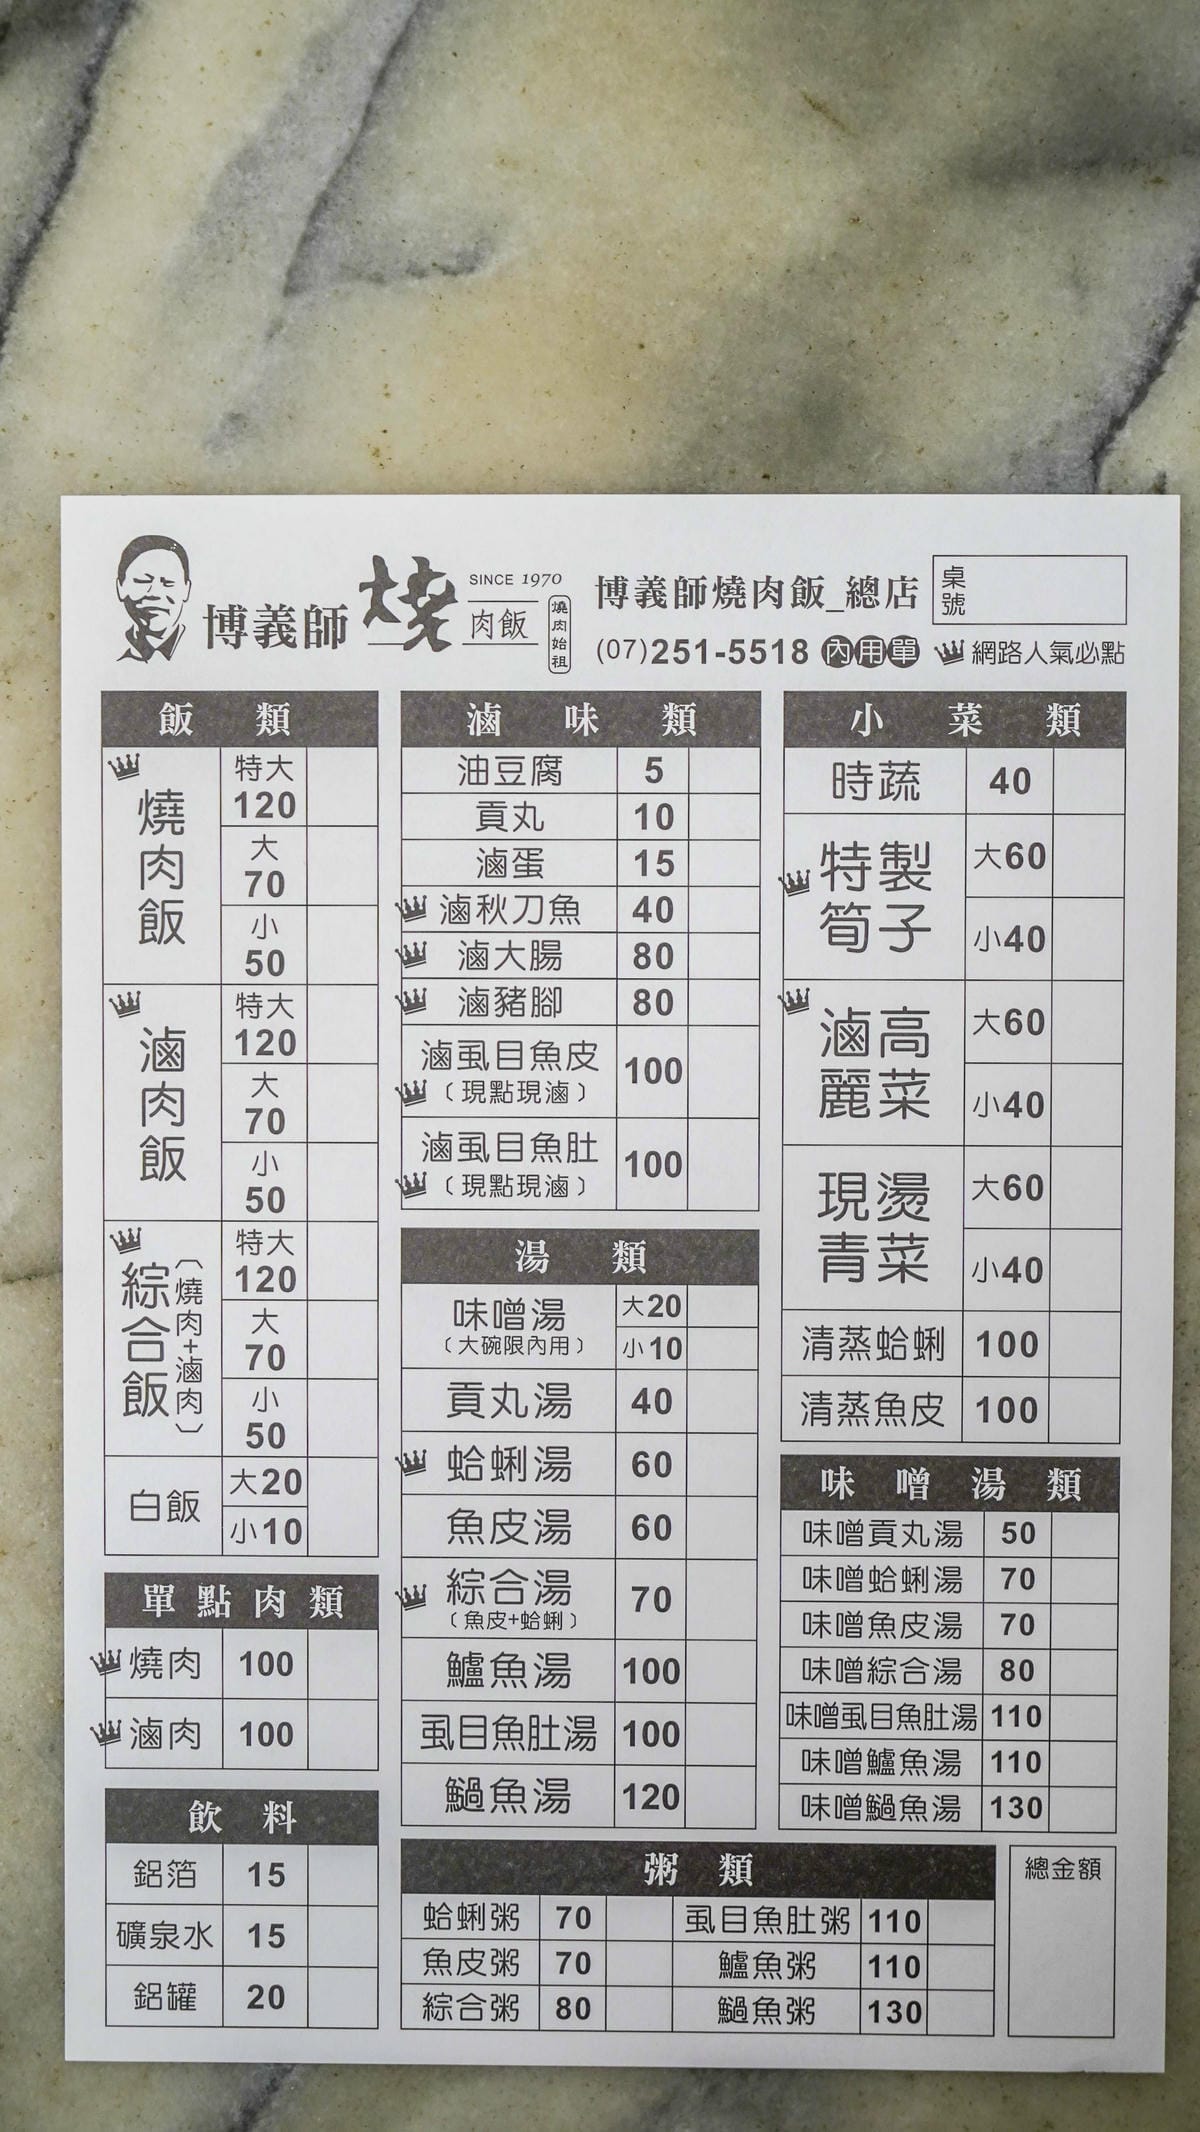 博義師 燒 肉飯 SINCE 1970 燒肉始祖
博義師燒肉飯_總店
(07)251-5518 內用單
桌號
網路人氣必點
飯類
燒肉飯
特大 120
大 70
小 50
滷肉飯
特大 120
大 70
小 50
綜合飯(燒肉+滷肉)
特大 120
大 70
小 50
白飯
大20
小10
單點肉類
燒肉 100
滷肉 100
飲料
鋁箔 15
礦泉水 15
鋁罐 20
滷味類
油豆腐 5
貢丸 10
滷蛋 15
滷秋刀魚 40
滷大腸 80
滷豬腳 80
滷虱目魚皮 100
(現點現滷)
滷虱目魚肚 100
(現點現滷)
湯類
味噌湯
(大碗限內用)
大20
小10
貢丸湯 40
蛤蜊湯 60
魚皮湯 60
綜合湯 70
(魚皮+蛤蜊)
鱸魚湯 100
虱目魚肚湯 100
鱲魚湯 120
小菜類
時蔬 40
特製筍子
大60
小40
滷高麗菜
大60
小40
現燙青菜
大60
小40
清蒸蛤蜊 100
清蒸魚皮 100
味噌湯類
味噌貢丸湯 50
味噌蛤蜊湯 70
味噌魚皮湯 70
味噌綜合湯 80
味噌虱目魚肚湯 110
味噌鱸魚湯 110
味噌鱲魚湯 130
粥類
蛤蜊粥 70 虱目魚肚粥 110
魚皮粥 70 鱸魚粥 110
綜合粥 80 鱲魚粥 130
總金額